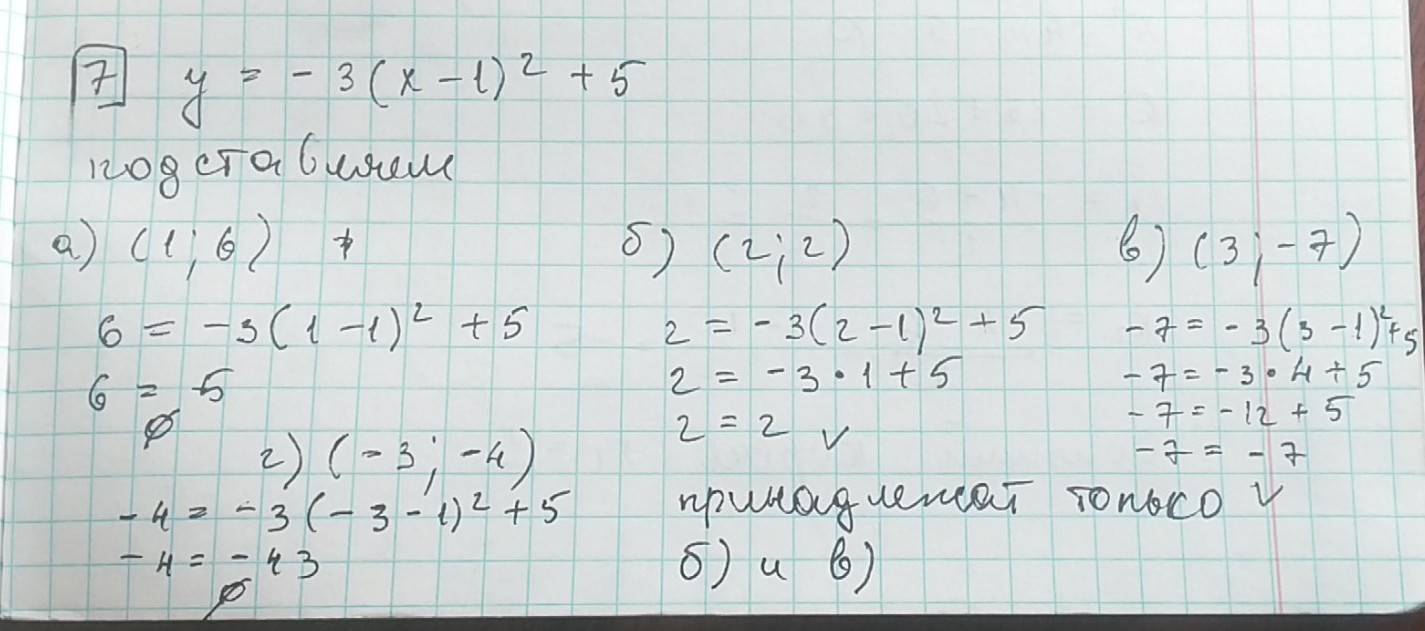 7 y = -3(x-1)² + 5
подставляем
а) (1; 6)
6 = -3(1-1)² + 5
6 = 5
∅
б) (2; 2)
2 = -3(2-1)² + 5
2 = -3·1+5
2 = 2 ✓
в) (3; -7)
-7 = -3(3-1)²+5
-7 = -3·4+5
-7 = -12 + 5
-7 = -7
✓
г) (-3; -4)
-4 = -3(-3-1)² + 5
-4 = -43
∅
принадлежат только
б) и в)